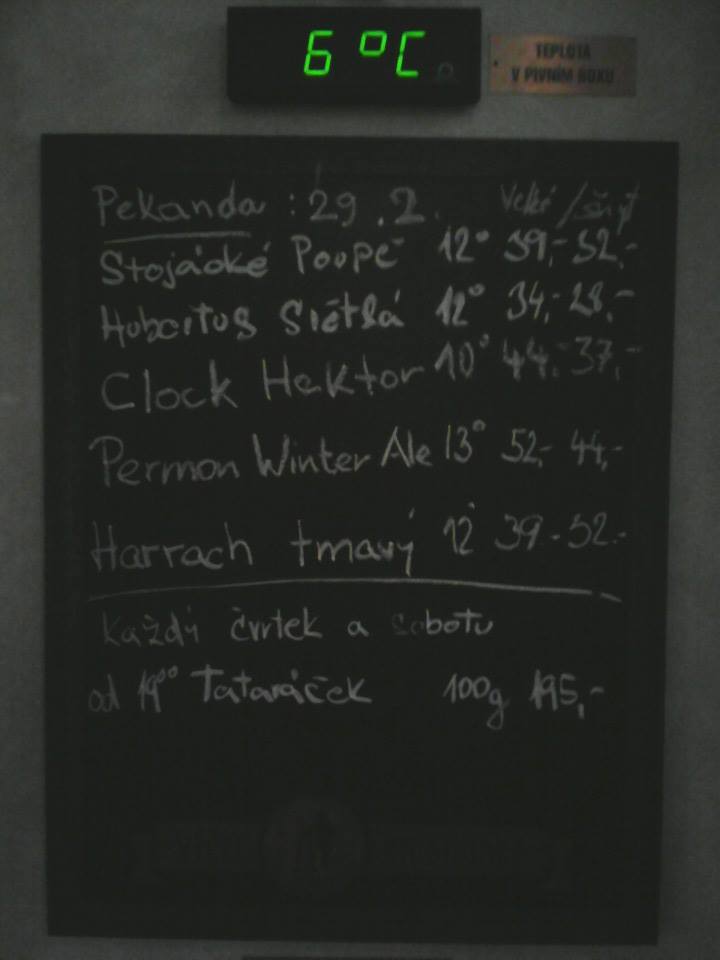 6 °C
TEPLOTA
V PIVNÍM BOXU
Pekanda : 29.2. Velké / šnyt
Stojácké Poupě 12° 39,- 32,-
Hubertus Světlá 12° 34,- 28,-
Clock Hektor 10° 44,- 37,-
Permon Winter Ale 13° 52,- 44,-
Harrach tmavý 12° 39.- 32.-
Každý čvrtek a sobotu
od 19⁰⁰ Tataráček 100g 195,-